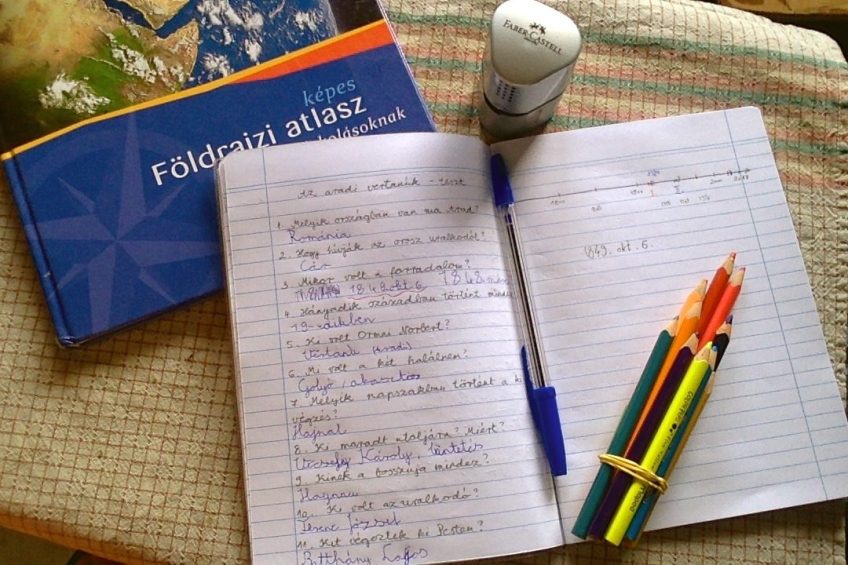 képes
Földrajzi atlasz
FABER-CASTELL
Az aradi vértanúk - teszt
1. Melyik országban van ma Arad?
Románia
2. Hogy hívják az orosz uralkodót?
Cár
3. Mikor volt a forradalom?
1849 okt. 6. 1848
4. Hányadik században történt mindez
19-
5. Ki volt Ormai Norbert?
Vértanú (Aradi)
6. Mi volt a két halálnem?
Golyó, akasztás
7. Melyik napszakban történt a
végzés?
Hajnal
8. Ki maradt utoljára? Miért?
Vécsey Károly, büntetés
9. Kinek a bosszúja mindez?
Haynau
10. Ki volt az uralkodó?
Ferenc József
11. Kit végeztek ki Pesten?
Batthány Lajos
1849. okt. 6.